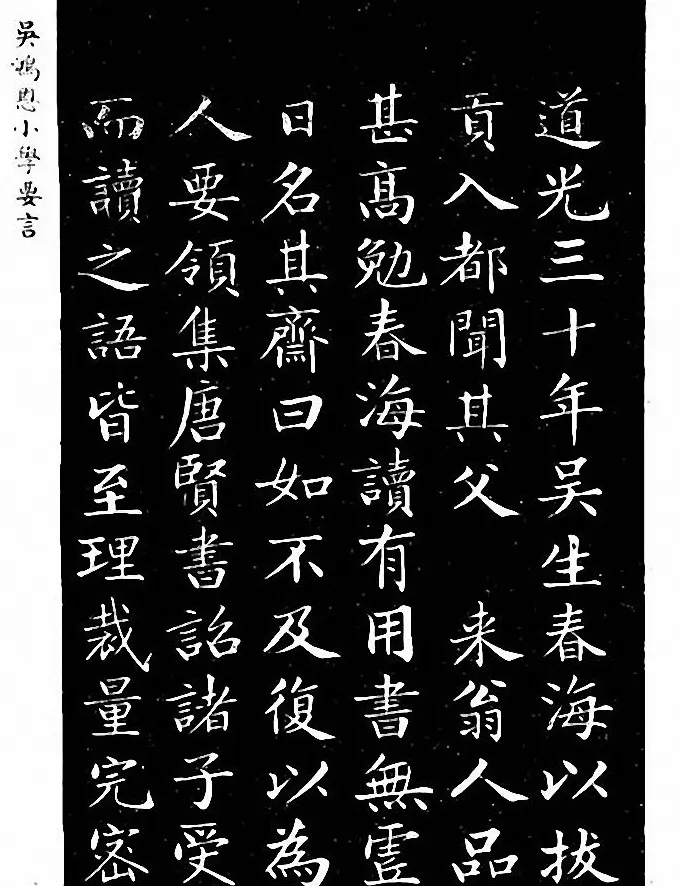 道光三十年吴生春海以拔
貢入都聞其父 来翁人品
甚高勉春海讀有用書無虛
日名其齋曰如不及復以為
人要領集唐賢書詔諸子受
而讀之語皆至理裁量完密
吳鴻恩小學要言